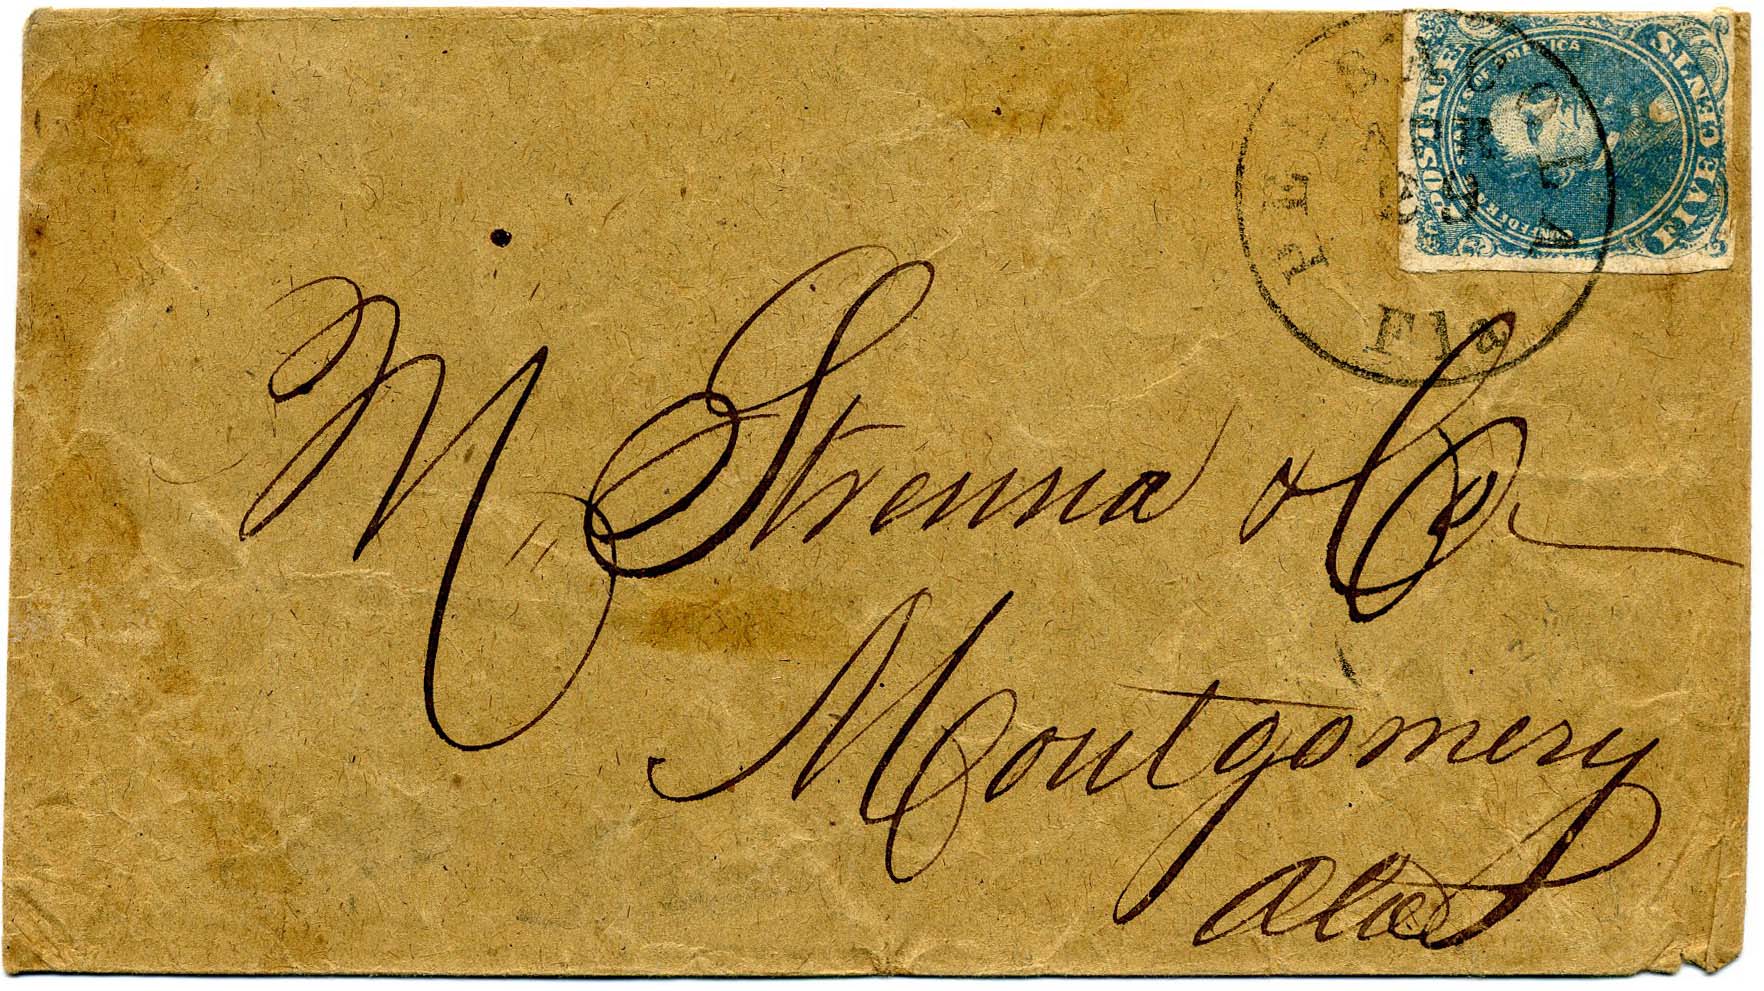 PENSACOLA
Fla
POSTAGE
CONFEDERATE STATES OF AMERICA
FIVE CENTS
M Strenna & Co
Montgomery
Ala